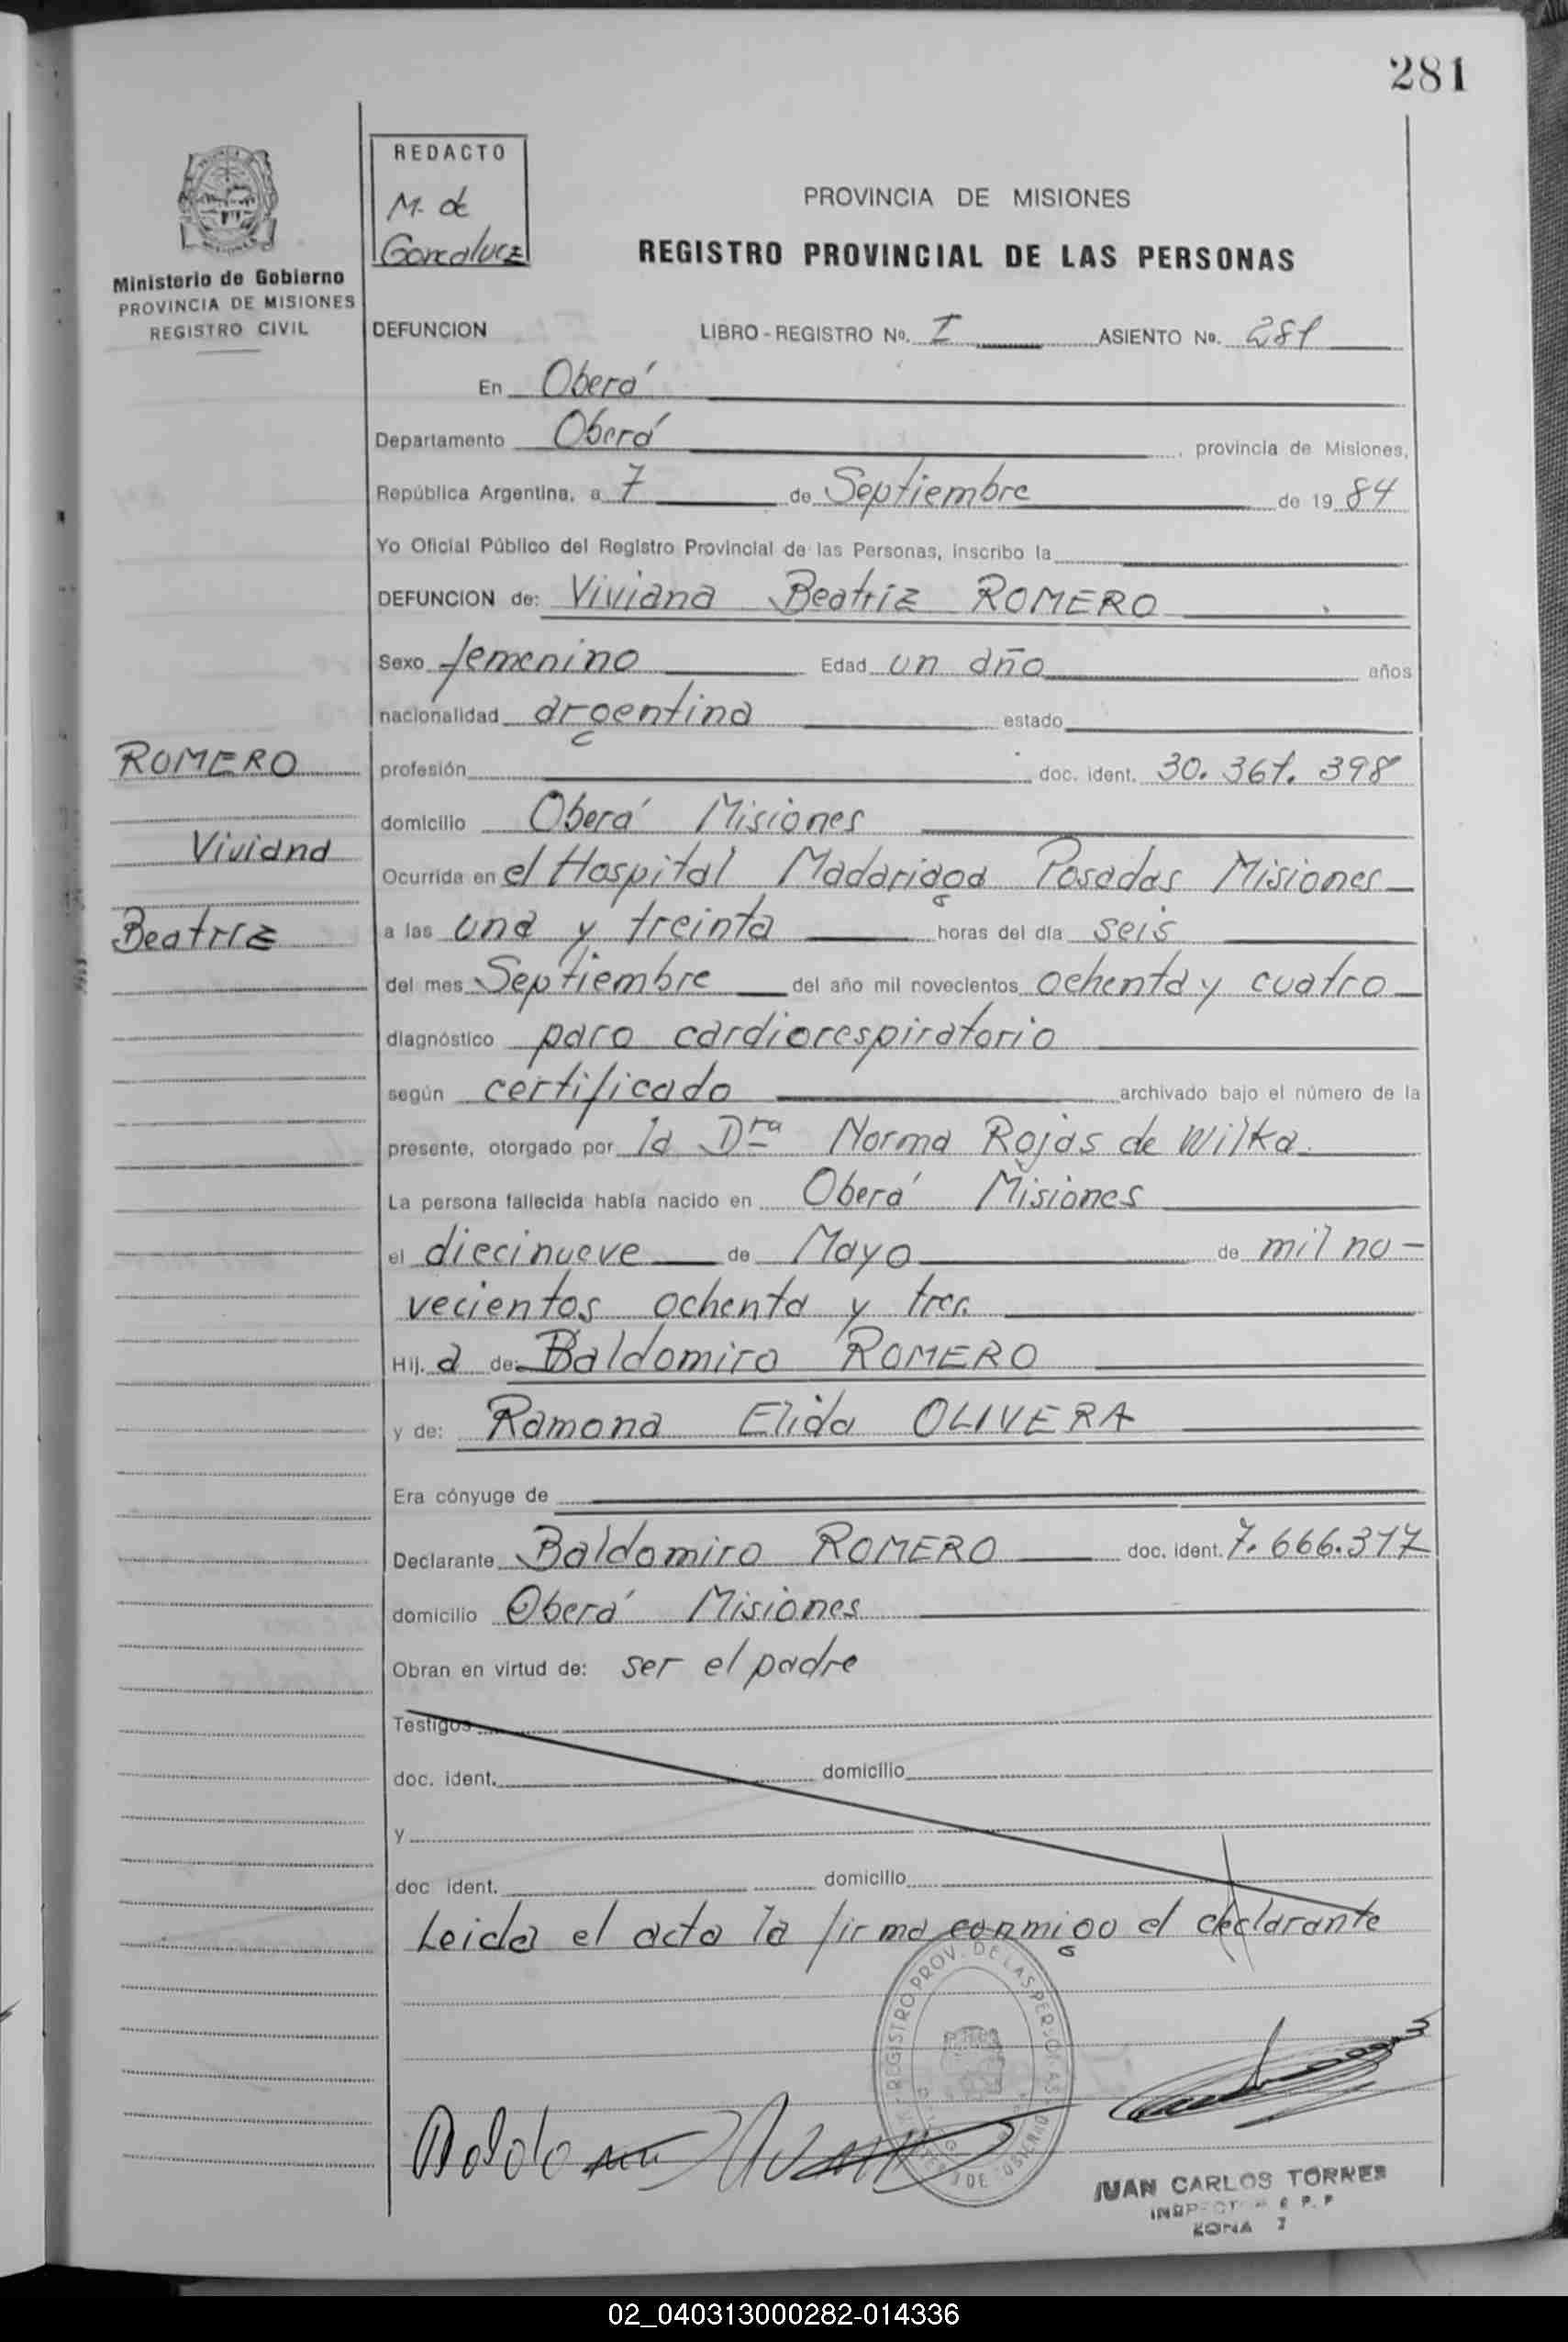 281
REDACTO
M. de
Goncalvez
Ministerio de Gobierno
PROVINCIA DE MISIONES
REGISTRO CIVIL
PROVINCIA DE MISIONES
REGISTRO PROVINCIAL DE LAS PERSONAS
DEFUNCION LIBRO - REGISTRO No. I ASIENTO No. 281
En Oberá
Departamento Oberá, provincia de Misiones,
República Argentina, a 7 de Septiembre de 19 84
Yo Oficial Público del Registro Provincial de las Personas, inscribo la
DEFUNCION de: Viviana Beatriz ROMERO
Sexo femenino Edad un año años
nacionalidad argentina estado
ROMERO
Viviana
Beatriz
profesión doc. ident. 30.367.398
domicilio Oberá Misiones
Ocurrida en el Hospital Madariaga Posadas Misiones
a las una y treinta horas del día seis
del mes Septiembre del año mil novecientos ochenta y cuatro
diagnóstico paro cardiorespiratorio
según certificado archivado bajo el número de la
presente, otorgado por la Dra Norma Rojas de Wilka
La persona fallecida había nacido en Oberá Misiones
el diecinueve de Mayo de mil no-
vecientos ochenta y tres.
Hij. a de: Baldomiro ROMERO
y de: Ramona Elida OLIVERA
Era cónyuge de
Declarante Baldomiro ROMERO doc. ident. 7.666.317
domicilio Oberá Misiones
Obran en virtud de: ser el padre
Testigos
doc. ident. domicilio
y
doc ident. domicilio
Leida el acta la firma conmigo el declarante
REGISTRO PROV. DE LAS PERSONAS
JUAN CARLOS TORRES
ZONA
02_040313000282-014336